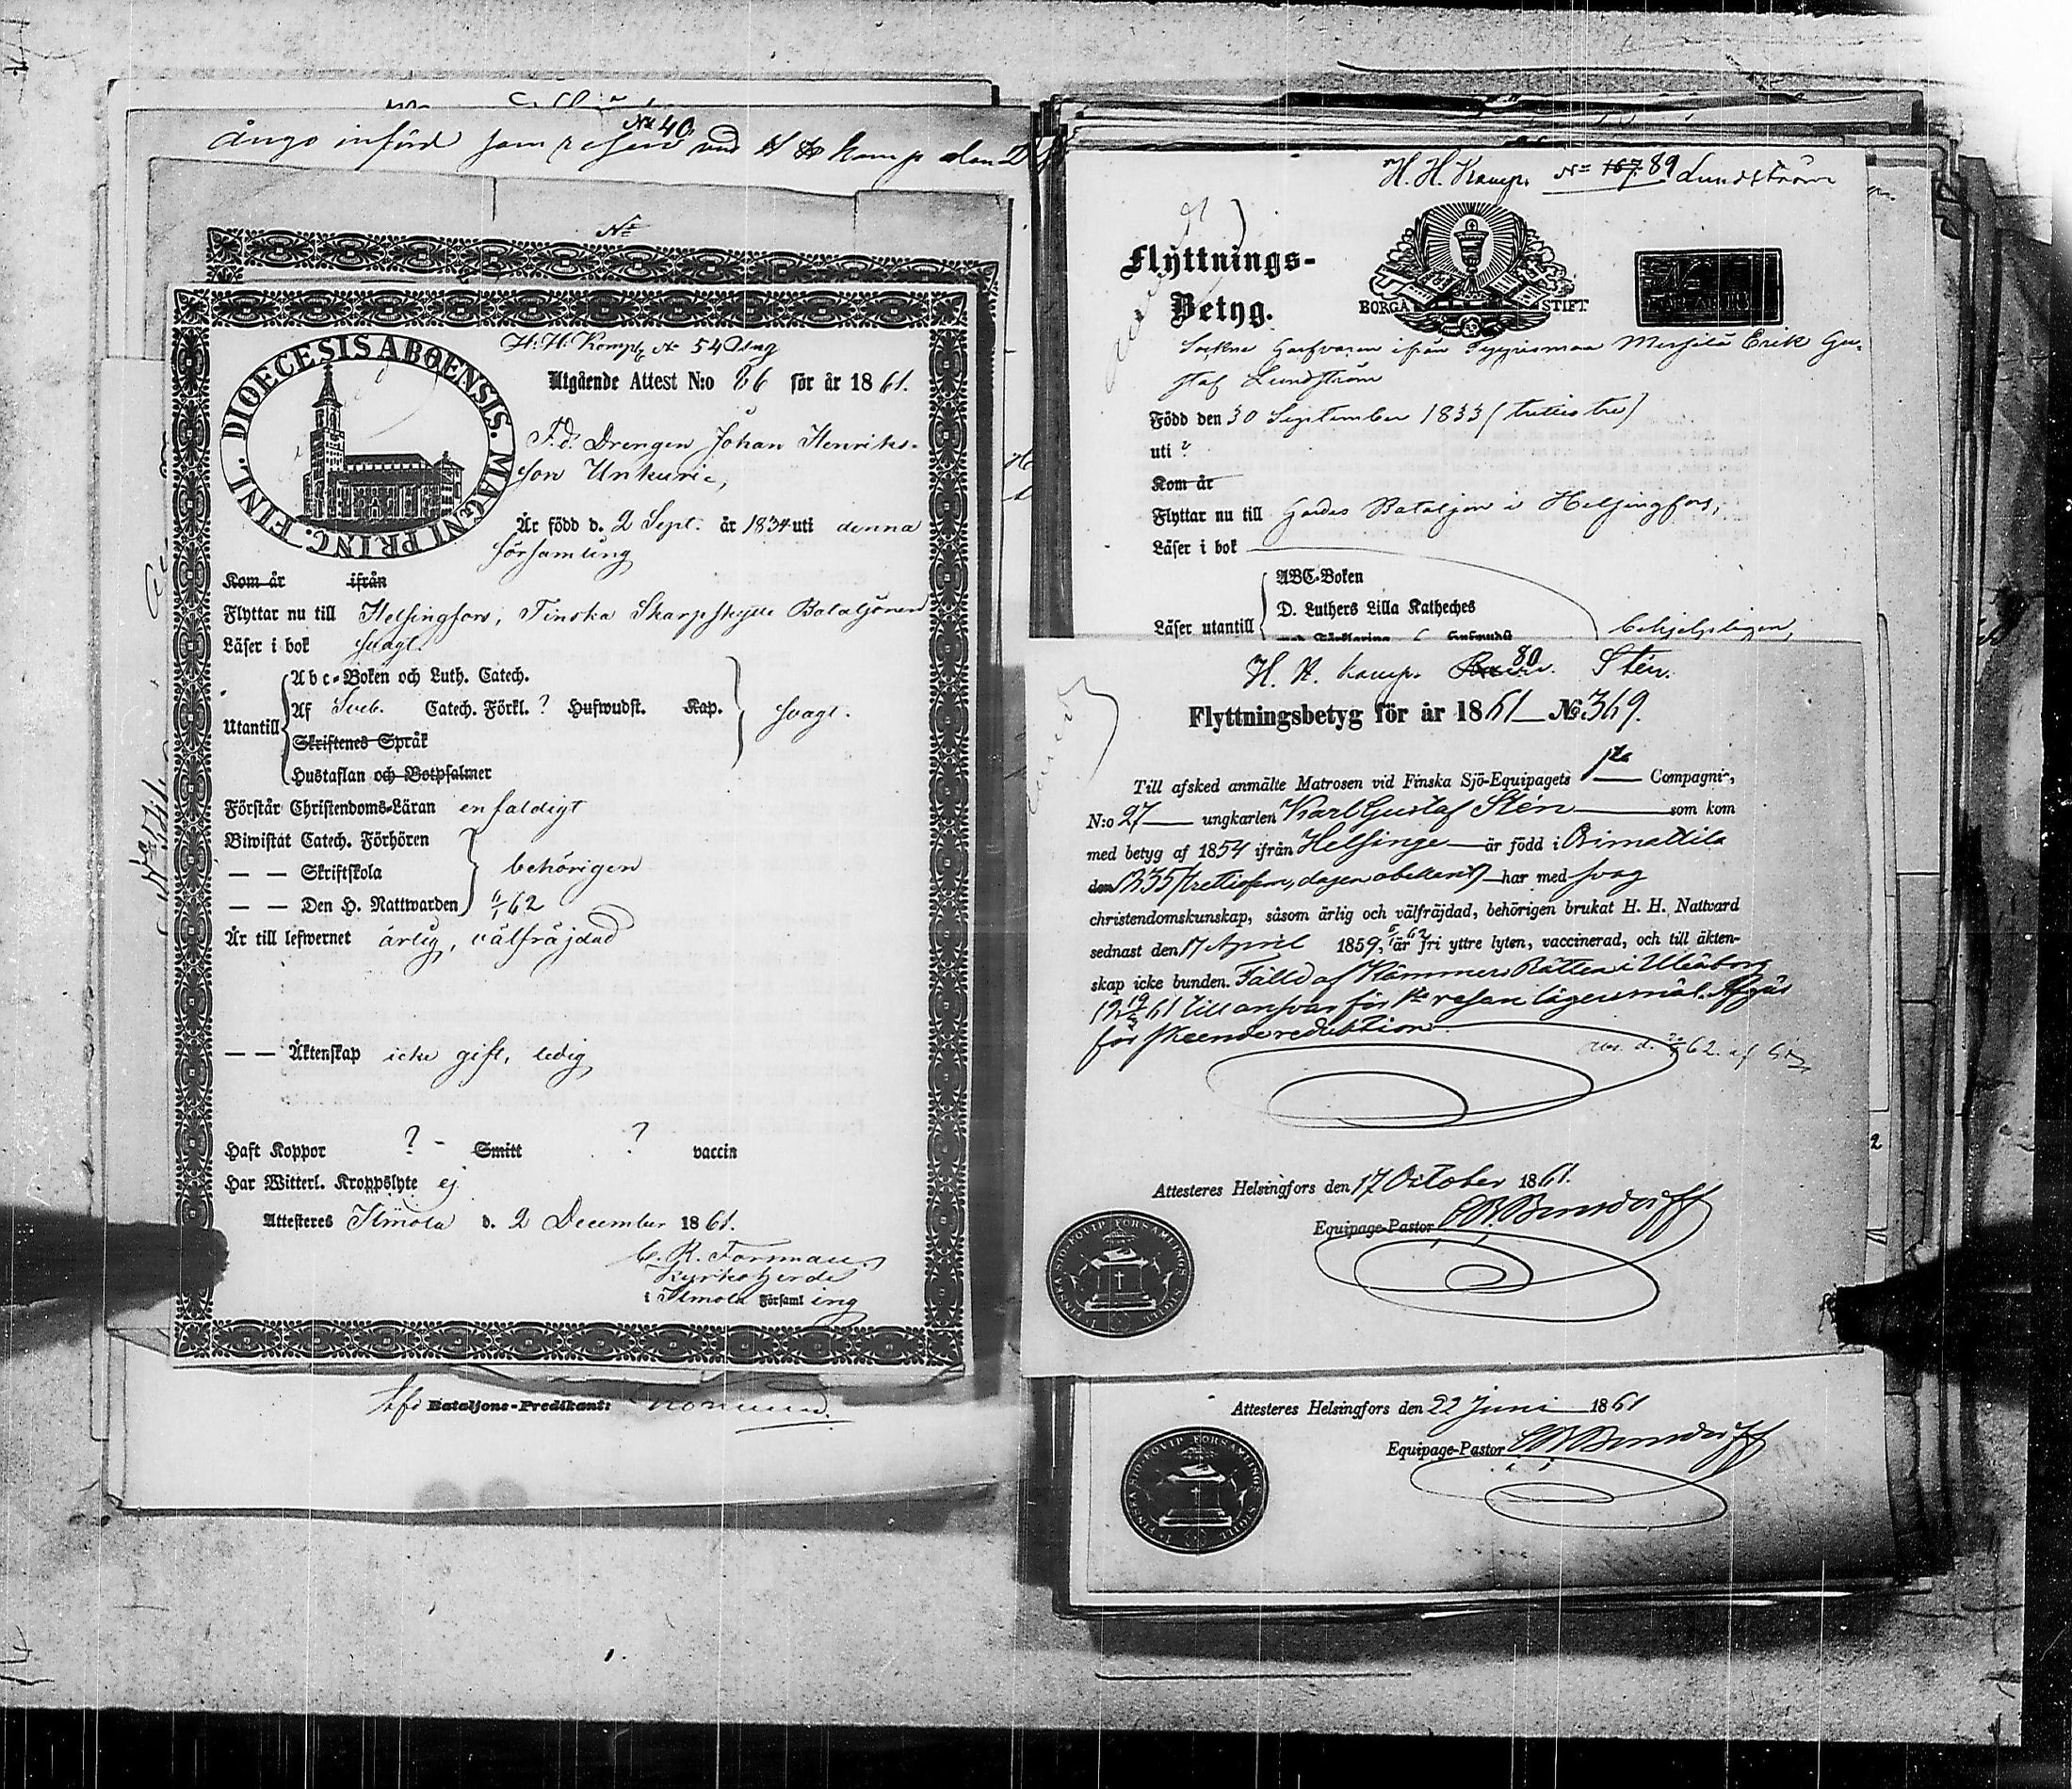 No 40
ångo införd som
No
H. H. Komp. No 54 Dug
Utgående Attest N:o 86 för år 1861.
DIOECESIS ABOENSIS. MAGNI PRINC. FINL.
F.d. Drengen Johan Henriks-
son Unkuri,
Är född d. 2 Sept. år 1834 uti denna
församling
Kom år ifrån
Flyttar nu till Helsingfors, Finska Skarpskytte Bataljonen
Läser i bok svagt.
Abc-Boken och Luth. Catech.
Utantill Af Sveb. Catech. Förkl. ? Hufwudst. Kap. svagt.
Skriftenes Språk
Hustaflan och Botpsalmer
Förstår Christendoms-Läran enfaldigt
Biwistat Catech. Förhören
— — Skriftskola behörigen
— — Den H. Nattwarden 6/1 62
Är till lefwernet ärlig, välfräjdad
— — Äktenskap icke gift, ledig
Haft Koppor ? - Smitt ? vaccin
Har Witterl. Kroppslyte ej
Attesteres Ilmola d. 2 December 1861.
C. R. Forsman
Kyrkoherde
i Ilmola Församl ing
Bataljons-Predikant:
H. H. Komp. No 167. 89 Lundström
Flyttnings-
Betyg.
BORGÅ STIFT
Sockne Garfvaren ifrån Erik Gu-
staf Lundström
Född den 30 September 1833 (trettio tre)
uti ?
Kom år
Flyttar nu till Gardes Bataljon i Helsingfors,
Läser i bok
ABC-Boken
D. Luthers Lilla Katheches
Läser utantill
H. H. Komp. 80 Stén.
Flyttningsbetyg för år 1861 — No 369.
Till afsked anmälte Matrosen vid Finska Sjö-Equipagets 1ta Compagnie,
N:o 27 — ungkarlen Karl Gustaf Stén — som kom
med betyg af 1854 ifrån Helsinge — är född i Orimattila
den 1835 (trettiofem, dagen obekant) — har med svag
christendomskunskap, såsom ärlig och välfräjdad, behörigen brukat H. H. Nattvard
sednast den 17 April 1859, är fri yttre lyten, vaccinerad, och till äkten-
skap icke bunden. Fälld af Kämners Rätten i Uleåborg
61 till ansvar för 1sta resan lägersmål. Afgår
för skeende reduktion
Attesteres Helsingfors den 17 October 1861.
Equipage-Pastor
1. FINSKA SJÖ-EQUIP. FÖRSAMLINGS SIGILL
Attesteres Helsingfors den 22 Juni 1861
Equipage-Pastor
1. FINSKA SJÖ-EQUIP. FÖRSAMLINGS SIGILL